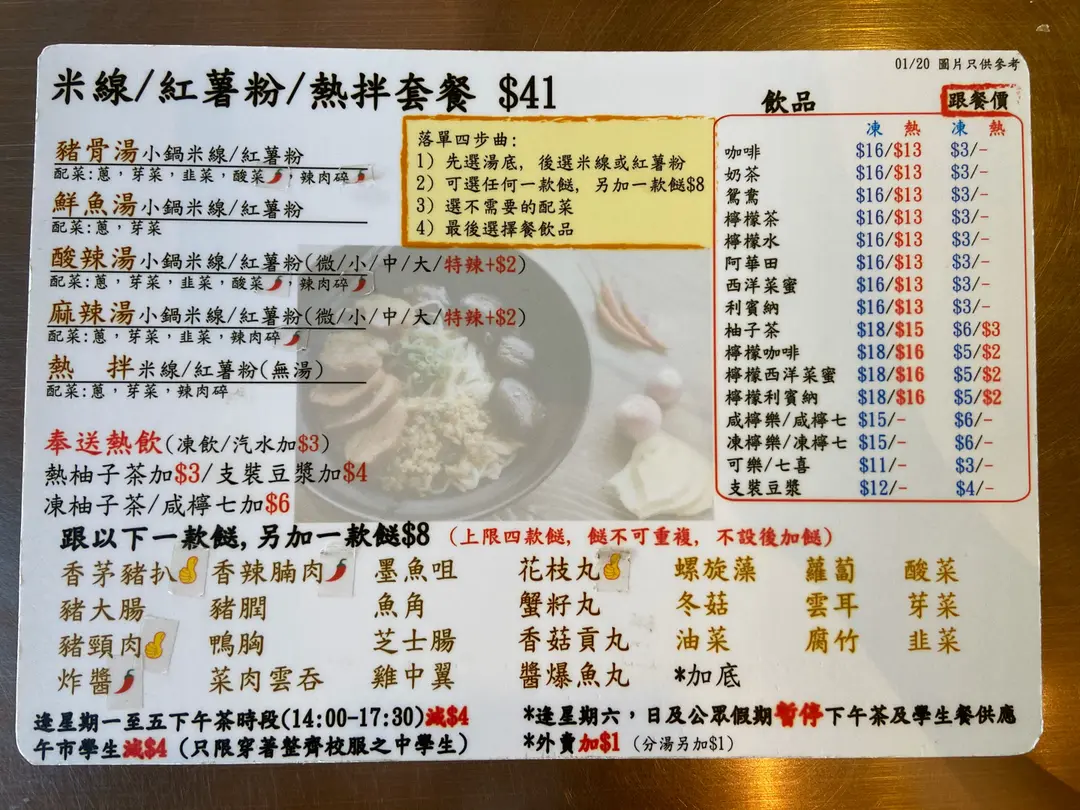 01/20 圖片只供參考
米線/紅薯粉/熱拌套餐 $41
豬骨湯小鍋米線/紅薯粉
配菜:蔥，芽菜，韭菜，酸菜，辣肉碎
鮮魚湯小鍋米線/紅薯粉
配菜:蔥，芽菜
酸辣湯小鍋米線/紅薯粉(微/小/中/大/特辣+$2)
配菜:蔥，芽菜，韭菜，酸菜，辣肉碎
麻辣湯小鍋米線/紅薯粉(微/小/中/大/特辣+$2)
配菜:蔥，芽菜，韭菜，辣肉碎
熱 拌米線/紅薯粉(無湯)
配菜:蔥，芽菜，辣肉碎
落單四步曲:
1) 先選湯底, 後選米線或紅薯粉
2) 可選任何一款餸, 另加一款餸$8
3) 選不需要的配菜
4) 最後選擇餐飲品
飲品 跟餐價
凍 熱 凍 熱
咖啡 $16/$13 $3/-
奶茶 $16/$13 $3/-
鴛鴦 $16/$13 $3/-
檸檬茶 $16/$13 $3/-
檸檬水 $16/$13 $3/-
阿華田 $16/$13 $3/-
西洋菜蜜 $16/$13 $3/-
利賓納 $16/$13 $3/-
柚子茶 $18/$15 $6/$3
檸檬咖啡 $18/$16 $5/$2
檸檬西洋菜蜜 $18/$16 $5/$2
檸檬利賓納 $18/$16 $5/$2
咸檸樂/咸檸七 $15/- $6/-
凍檸樂/凍檸七 $15/- $6/-
可樂/七喜 $11/- $3/-
支裝豆漿 $12/- $4/-
奉送熱飲(凍飲/汽水加$3)
熱柚子茶加$3/支裝豆漿加$4
凍柚子茶/咸檸七加$6
跟以下一款餸,另加一款餸$8 (上限四款餸, 餸不可重複, 不設後加餸)
香茅豬扒 香辣腩肉 墨魚咀 花枝丸 螺旋藻 蘿蔔 酸菜
豬大腸 豬膶 魚角 蟹籽丸 冬菇 雲耳 芽菜
豬頸肉 鴨胸 芝士腸 香菇貢丸 油菜 腐竹 韭菜
炸醬 菜肉雲吞 雞中翼 醬爆魚丸 *加底
逢星期一至五下午茶時段(14:00-17:30)減$4
午市學生減$4 (只限穿著整齊校服之中學生)
*逢星期六，日及公眾假期暫停下午茶及學生餐供應
*外賣加$1 (分湯另加$1)